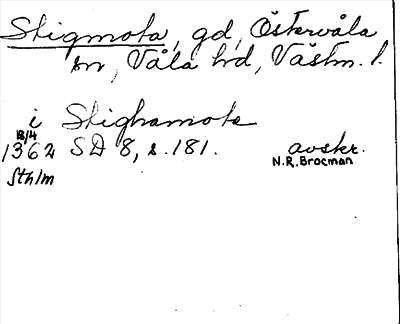 Stigmota, gd, Östervåla
sn, Våla hd, Västm. l.
i Stighamote
18/4
1362 SD 8, s. 181. avskr.
N.R. Brocman
Sthlm